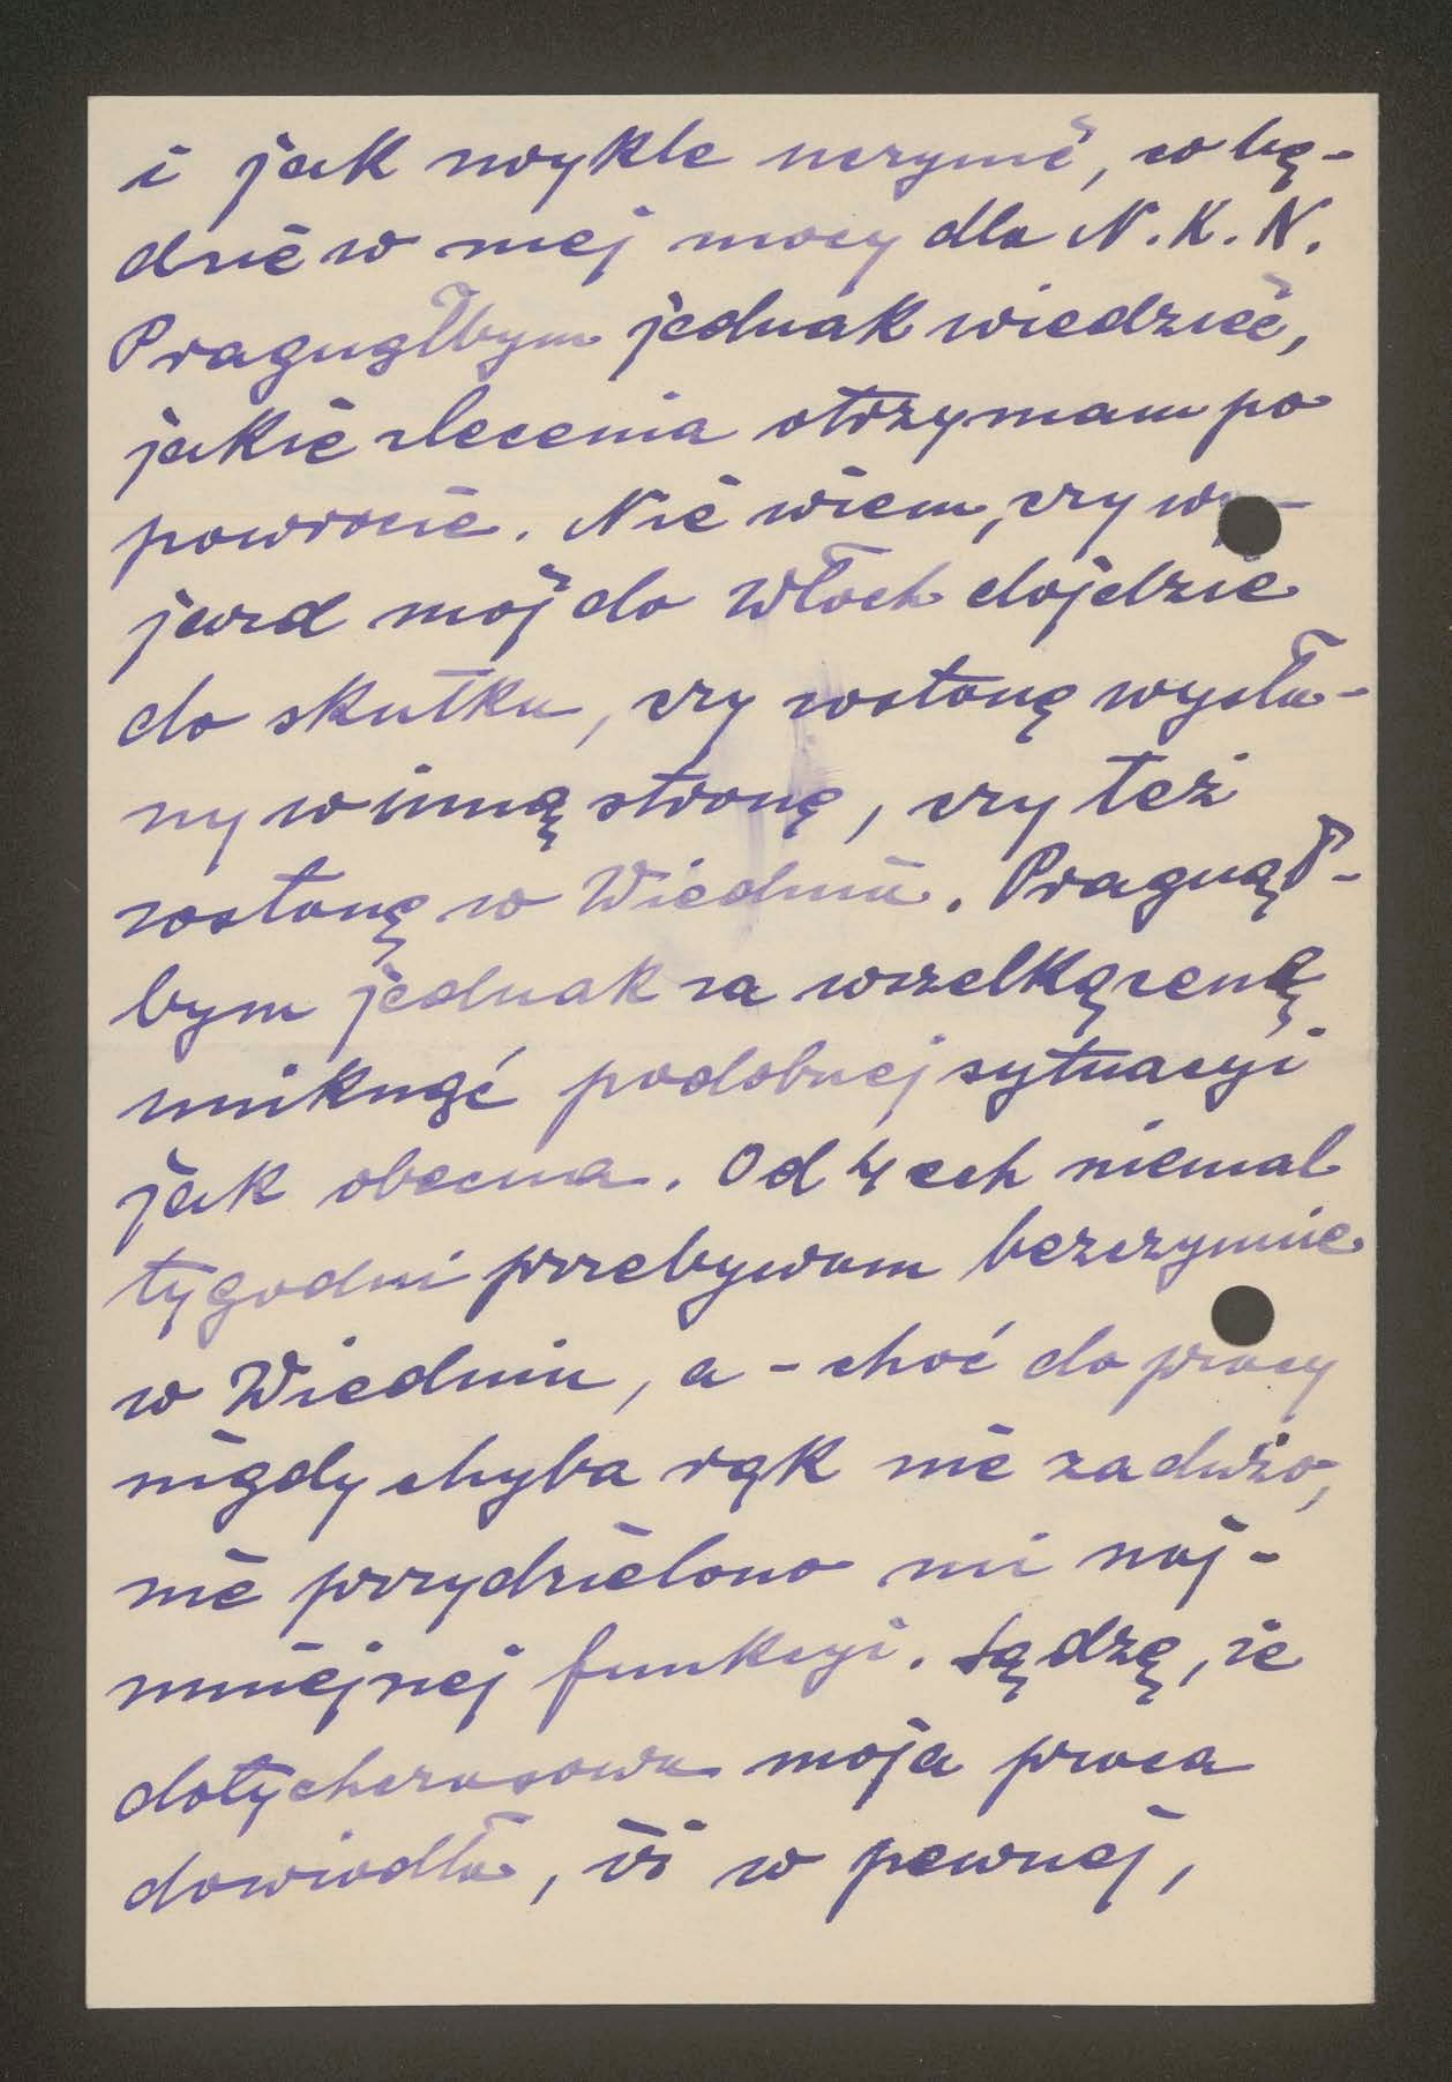 i jak zwykle uczynić, co bę-
dzie w mej mocy dla N.K.N.
Pragnąłbym jednak wiedzieć,
jakie zlecenia otrzymam po
powrocie. Nie wiem, czy wy-
jazd mój do Włoch dojdzie
do skutku, czy zostanę wysła-
ny w inną stronę, czy też
zostanę w Wiedniu. Pragnął-
bym jednak za wszelką cenę
uniknąć podobnej sytuacyi
jak obecna. Od 4 ech niemal
tygodni przebywam bezczynnie
w Wiedniu, a - choć do pracy
nigdy chyba rąk nie za dużo,
nie przydzielono mi naj-
mniejszej funkcyi. Sądzę, że
dotychczasowa moja praca
dowiodła, iż w pewnej,